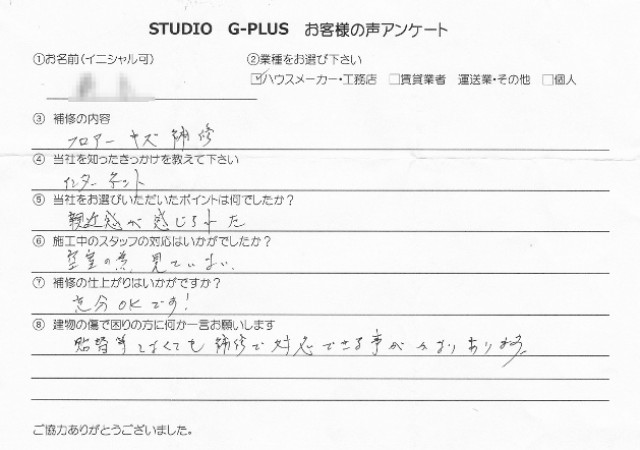 STUDIO G-PLUS お客様の声アンケート
①お名前(イニシャル可)
②業種をお選び下さい
☑ハウスメーカー・工務店 □賃貸業者 運送業・その他 □個人
③ 補修の内容
フロアー キズ 補修
④ 当社を知ったきっかけを教えて下さい
インターネット
⑤ 当社をお選びいただいたポイントは何でしたか?
親近感が感じられた
⑥ 施工中のスタッフの対応はいかがでしたか?
空室の為 見ていない
⑦ 補修の仕上がりはいかがですか?
充分OKです!
⑧ 建物の傷で困りの方に何か一言お願いします
貼替等しなくても 補修で対応できる事がかなりあります。
ご協力ありがとうございました。